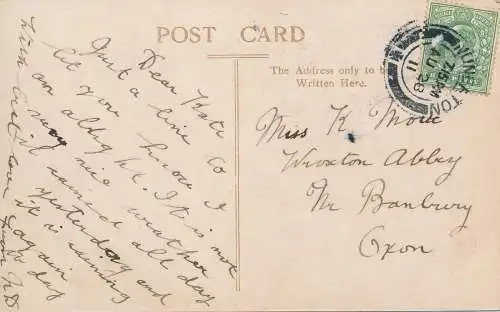 POST CARD
The Address only to be
Written Here.
Dear Kate
Just a line to
let you know I
am alright. It is not
very nice weather
it rained all day
yesterday and
it is raining
again to day
with love
from
Miss K.
Wroxton Abbey
Nr Banbury
Oxon
NUNEATON
7.15 PM
AU 28
11